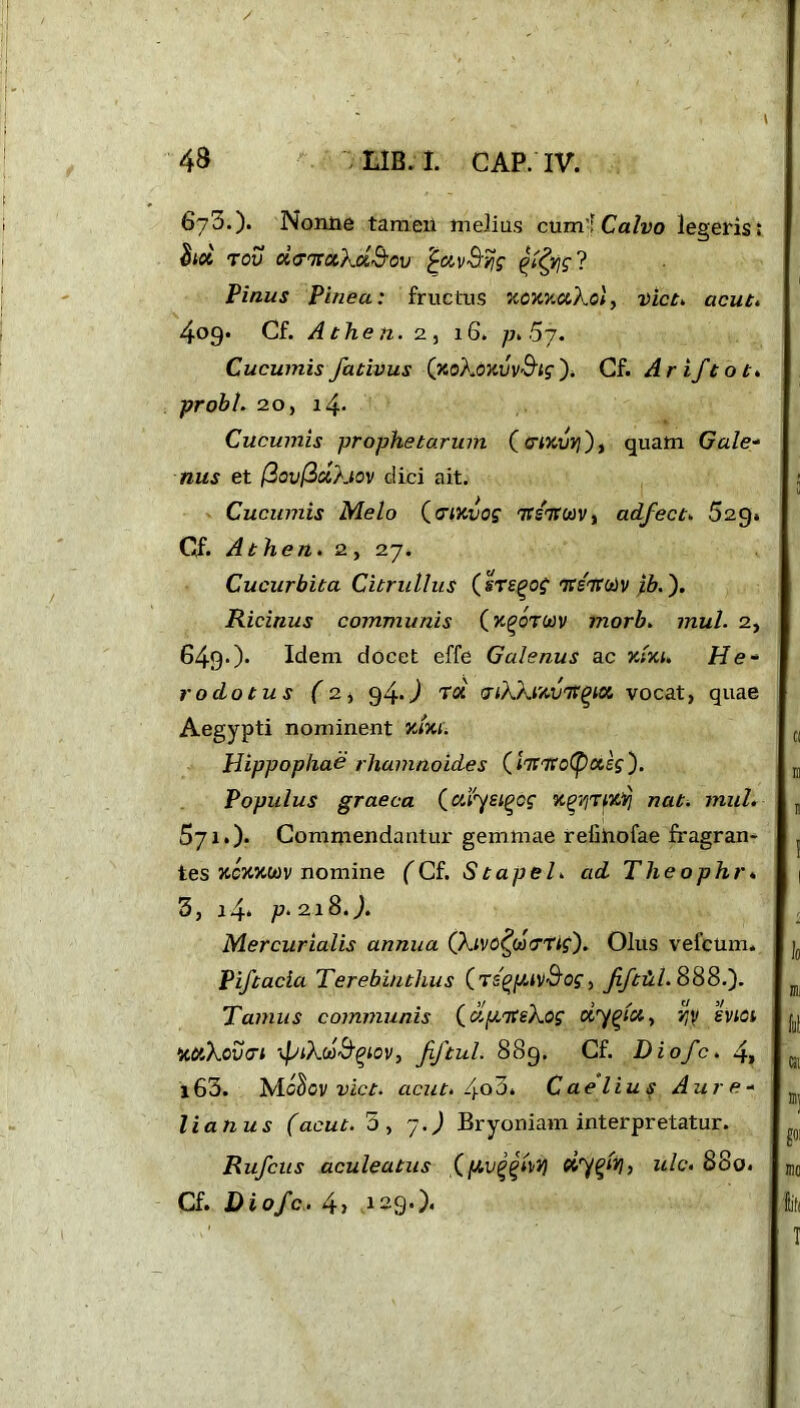 48 LIB. I. CAP. IV.
673.). Nonne tamen melius cum Calvo legeris:
διὰ τοῦ ἀσπαλάθου ξανθῆς ῥίζης?
Pinus Pinea: fructus κοκκαλοὶ, vict. acut.
409. Cf. Athen. 2, 16. p. 57.
Cucumis sativus (κολοκύνθις). Cf. Aristot.
probl. 20, 14.
Cucumis prophetarum (σικύη), quam Gale-
nus et βουβάλιον dici ait.
Cucumis Melo (σικυὸς πέπων, adfect. 529.
Cf. Athen. 2, 27.
Cucurbita Citrullus (ἕτερος πέπων ib.).
Ricinus communis (κρότων morb. mul. 2,
649.). Idem docet esse Galenus ac κίκι. He-
rodotus (2, 94.) τὰ σιλλικύπρια vocat, quae
Aegypti nominent κίκι.
Hippophaë rhamnoides (ἱπποφαές).
Populus graeca (αἴγειρος κρητικὴ nat. mul.
571.). Commendantur gemmae resinosae fragran-
tes κόκκων nomine (Cf. Stapel. ad Theophr.
3, 14. p. 218.).
Mercurialis annua (λινόζωστις). Olus vescum.
Pistacia Terebinthus (τέρμινθος, fistul. 888.).
Tamus communis (ἄμπελος ἀγρία, ἣν ἔνιοι
καλοῦσι ψιλώθριον, fistul. 889. Cf. Diosc. 4,
163. Μόδον vict. acut. 403. Caelius Aure-
lianus (acut. 3, 7.) Bryoniam interpretatur.
Ruscus aculeatus (μυῤῥίνη ἀγρίη, ulc. 880.
Cf. Diosc. 4, 129.).